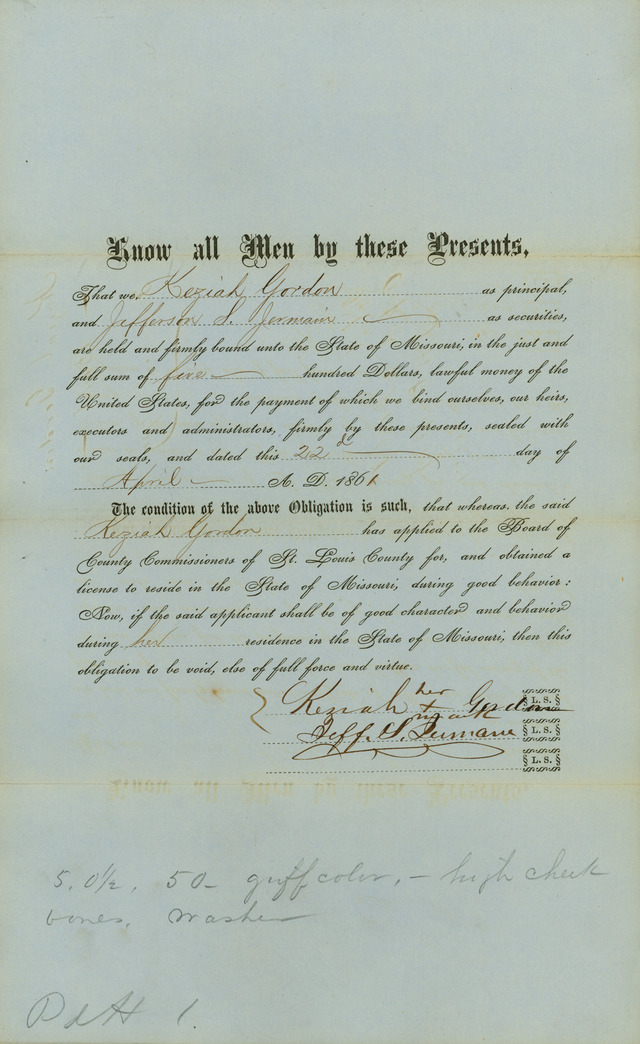 Know all Men by these Presents,
That we, Keziah Gordon as principal,
and Jefferson S. Jermain as securities,
are held and firmly bound unto the State of Missouri, in the just and
full sum of five hundred Dollars, lawful money of the
United States, for the payment of which we bind ourselves, our heirs,
executors and administrators, firmly by these presents, sealed with
our seals, and dated this 22d day of
April A. D. 1861
The condition of the above Obligation is such, that whereas, the said
Keziah Gordon has applied to the Board of
County Commissioners of St. Louis County for, and obtained a
license to reside in the State of Missouri, during good behavior:
Now, if the said applicant shall be of good character and behavior
during her residence in the State of Missouri, then this
obligation to be void, else of full force and virtue.
Keziah her x mark Gordon L. S.
Jeff. S. L. S.
L. S.
5. 0½, 50 - color, - high cheek
bones, Washer